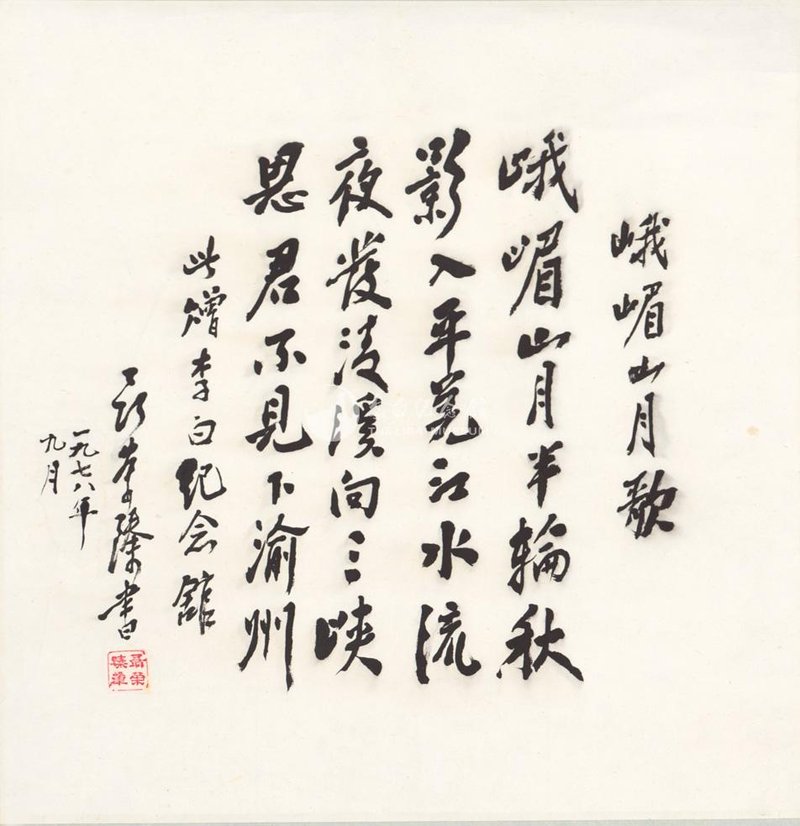 峨嵋山月歌
峨嵋山月半輪秋
影入平羌江水流
夜發清溪向三峽
思君不見下渝州
此贈李白纪念舘
聂荣臻書
一九七八年
九月
聶榮臻章